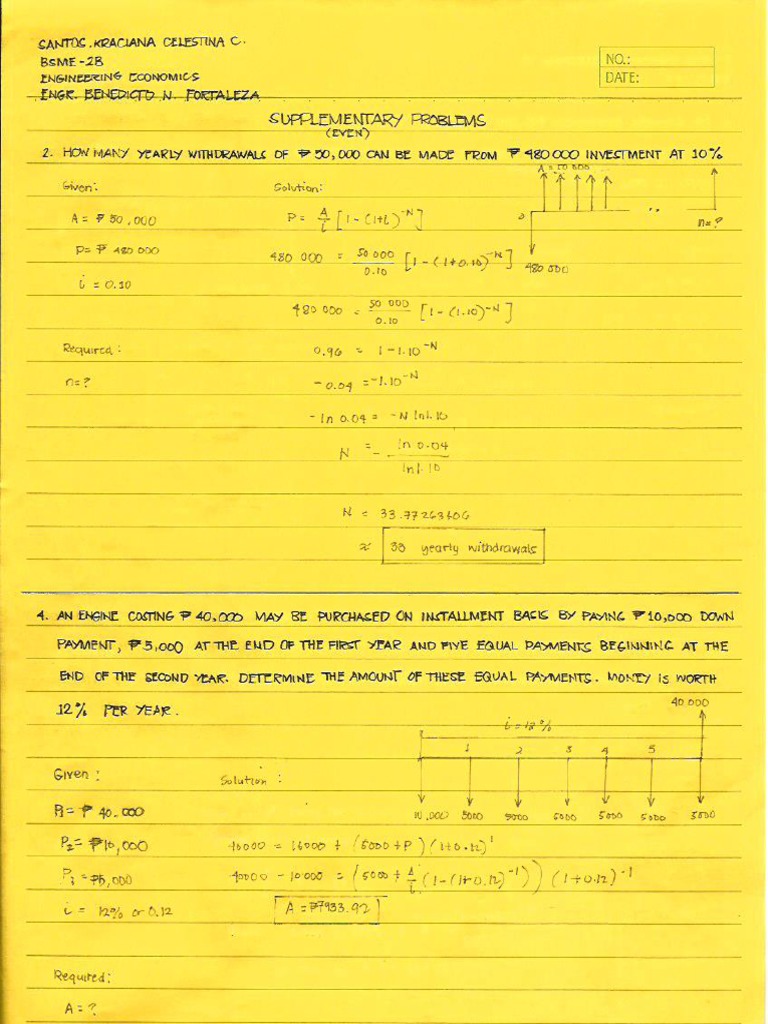 SANTOS, KRACIANA CELESTINA C.
BSME-2B
ENGINEERING ECONOMICS
ENGR. BENEDICTO N. FORTALEZA
NO.:
DATE:
SUPPLEMENTARY PROBLEMS
(EVEN)
2. HOW MANY YEARLY WITHDRAWALS OF ₱ 50,000 CAN BE MADE FROM ₱ 480 000 INVESTMENT AT 10%
Given:
A = ₱ 50,000
P = ₱ 480 000
i = 0.10
Required:
n=?
Solution:
P = A/i [1-(1+i)^-N]
480 000 = 50 000/0.10 [1-(1+0.10)^-N]
480 000 = 50 000/0.10 [1-(1.10)^-N]
0.96 = 1-1.10^-N
-0.04 = -1.10^-N
-ln 0.04 = -N ln1.10
N = - ln 0.04/ln1.10
N = 33.77263606
≈ 33 yearly withdrawals
A = 50 000
0
n=?
480 000
4. AN ENGINE COSTING ₱ 40,000 MAY BE PURCHASED ON INSTALLMENT BASIS BY PAYING ₱ 10,000 DOWN
PAYMENT, ₱ 5,000 AT THE END OF THE FIRST YEAR AND FIVE EQUAL PAYMENTS BEGINNING AT THE
END OF THE SECOND YEAR. DETERMINE THE AMOUNT OF THESE EQUAL PAYMENTS. MONEY IS WORTH
12% PER YEAR.
40.000
i = 12%
1 2 3 4 5
10,000 5000 5000 5000 5000 5000 5000
Given:
P1 = ₱ 40.000
P2 = ₱10,000
P3 = ₱5,000
i = 12% or 0.12
Required:
A = ?
Solution:
40000 = 10000 + (5000+P)(1+0.12)^1
40000 - 10000 = (5000 + A/i (1-(1+0.12)^-1))(1+0.12)^-1
A = ₱7933.92